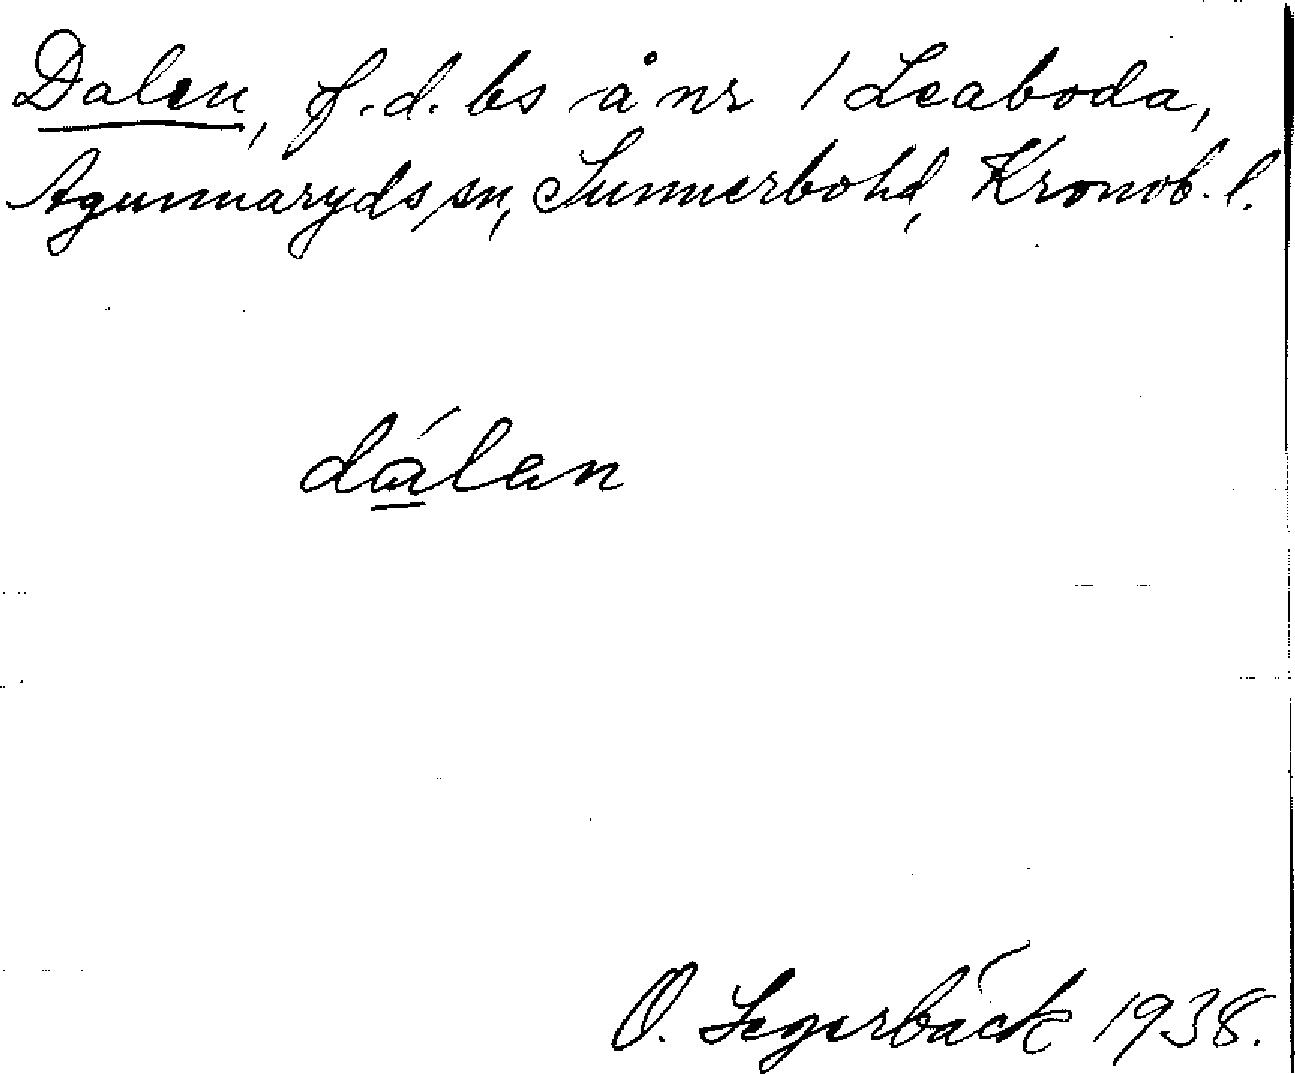 Dalen, f.d. bs å nr 1 Leaboda,
Agunnaryds sn, Sunnerbohd, Kronob. l.
dálen
O. Segerbäck 1938.